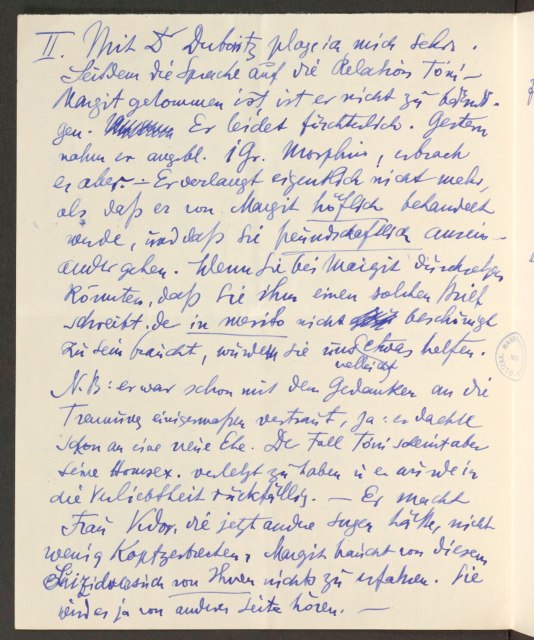 II. Mit Dr Dubovitz plage ich mich sehr.
Seitdem die Sprache auf die Relation Toni-
Margit gekommen ist, ist er nicht zu bändi-
gen. Er leidet fürchterlich. Gestern
nahm er angebl. 1 Gr. Morphin, erbrach
es aber. – Er verlangt eigentlich nicht mehr,
als daß er von Margit höflich behandelt
würde, und daß sie freundschaftlich ausein-
andergehen. Wenn Sie bei Margit durchsetzen
könnten, daß Sie ihm einen solchen Brief
schreibt, der in merito nicht beschönigt
zu sein braucht, würden Sie uns etwas helfen.
vielleicht
N.B: er war schon mit den Gedanken an die
Trennung einigermaßen vertraut, ja: er dachte
schon an eine neue Ehe. Der Fall Toni scheint aber
seine Homsex. verletzt zu haben u er wurde in
die Verliebtheit rückfällig. — Er macht
Frau Vidor, die jetzt andre Sorgen hätte, nicht
wenig Kopfzerbrechen. Margit braucht von diesem
Suizidversuch von Ihnen nichts zu erfahren. Sie
wird es ja von andrer Seite hören. —